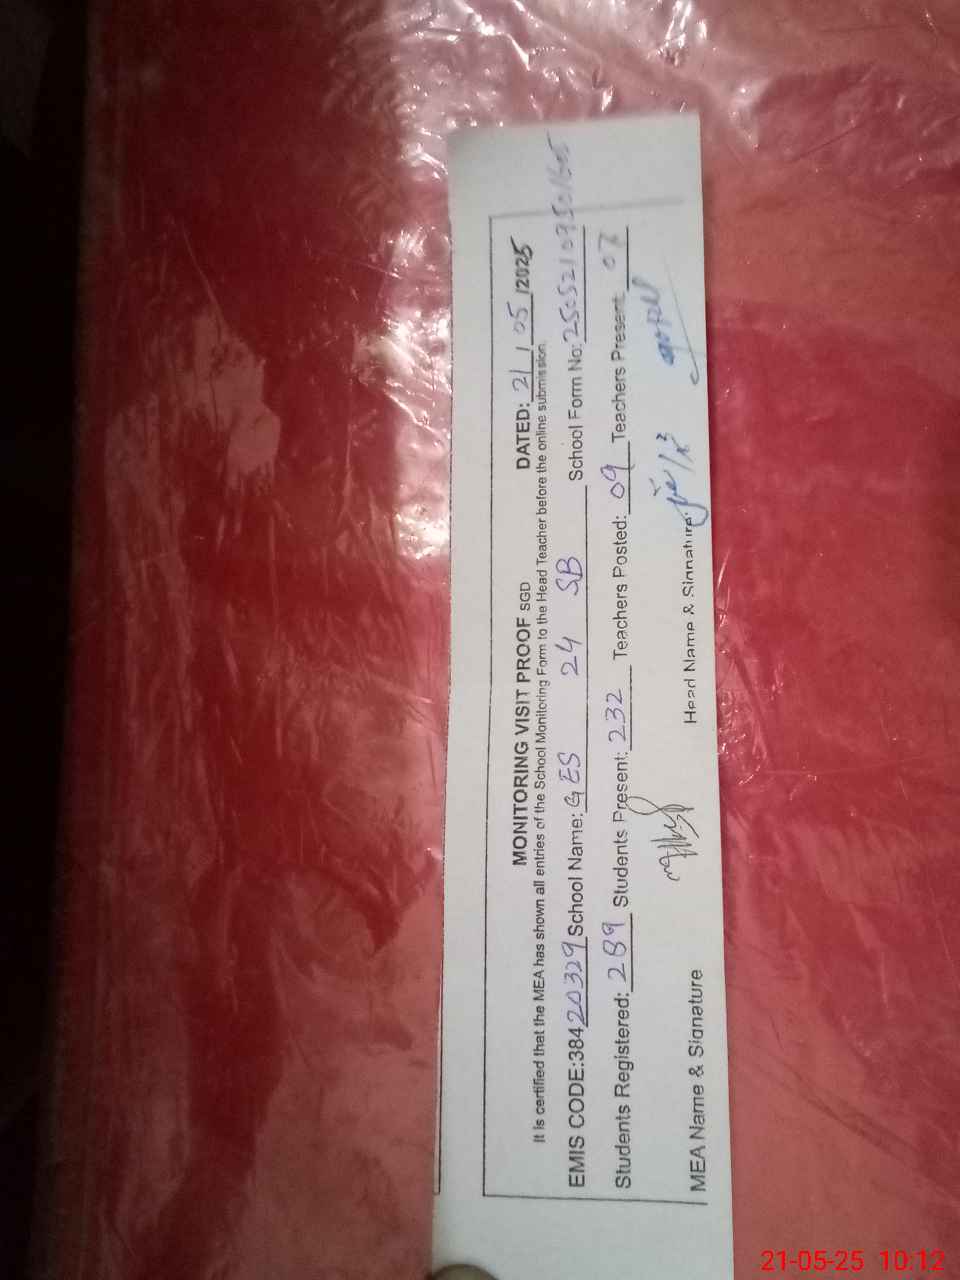 MONITORING VISIT PROOF SGD DATED: 21/05/2025
It is certified that the MEA has shown all entries of the School Monitoring Form to the Head Teacher before the online submission.
EMIS CODE:38420329 School Name: GES 24 SB School Form No: 250521095
Students Registered: 289 Students Present: 232 Teachers Posted: 09 Teachers Present 07
MEA Name & Signature Head Name & Signature:
21-05-25 10:12